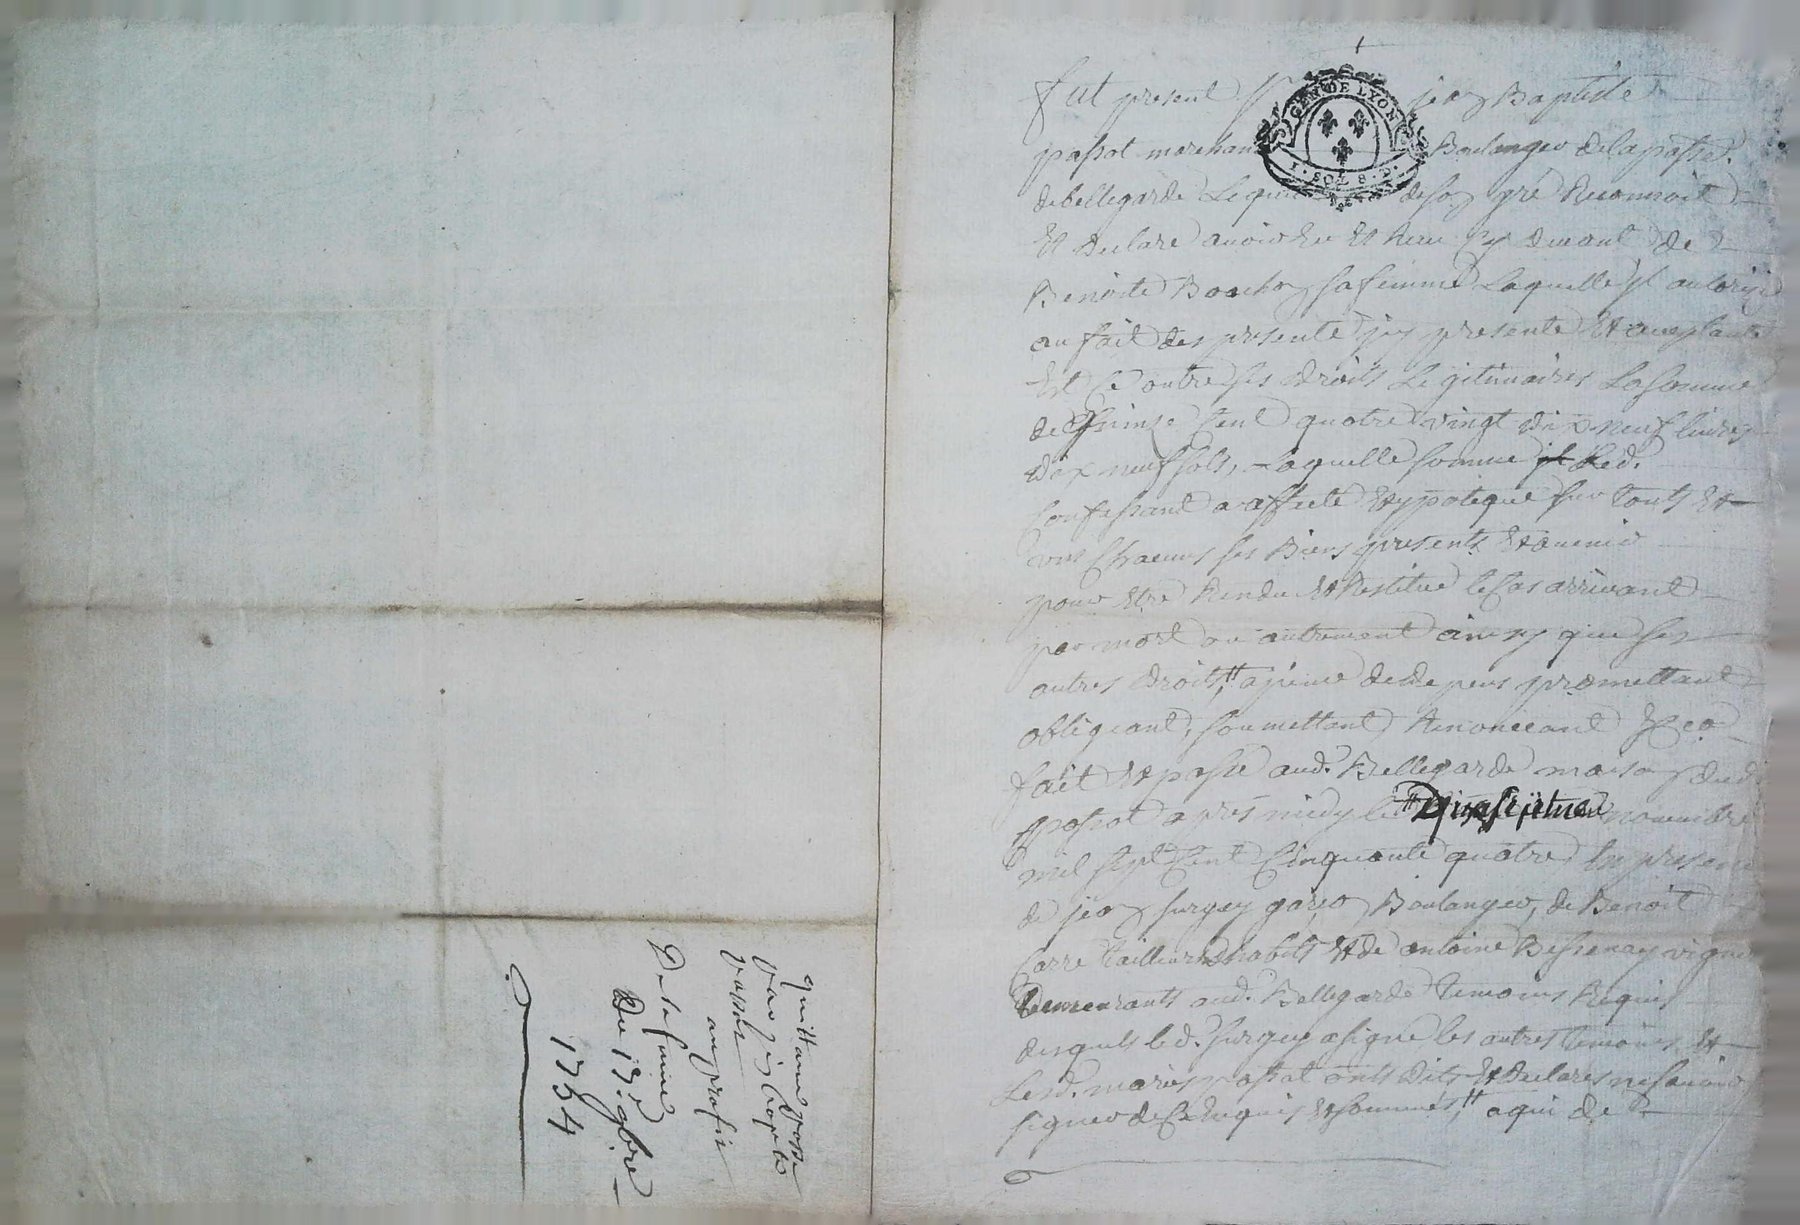 fut present Sr jean Baptiste
passot marchand Boulanger de la posse
de bellegarde Lequel de son gré Reconnoit
Et declare avoir Eu Et Receu cy devant de
Benoite Bouchon sa femme Laquelle Il authorise
au fait des presente icy presente Et acceptante
Et ce outre ses droits Legitimaires La somme
de quinze Cent quatre vingt dix neuf livres
dix neuf sols, Laquelle somme Led.
Confessant a affecté Et ypotequé sur touts Et
uns Chacuns ses Biens presents Et avenir
pour Etre Rendu Et Restitué le Cas arrivant
par mort ou autrement ainsy que ses
autres droits, a peine de depens promettant
obligeant, soumettant Renonceant &ca
fait Et passé aud. Bellegarde maison dud.
passot apres midy le Dix septieme novembre
mil sept Cent Cinquante quatre En presence
de jean furgey garçon Boulanger, de Benoit
Carre tailleur d'habits Et de antoine Bessenay vigneron
Demeurants aud. Bellegarde temoins Requis
desquels led. furgey a signé les autres temoins Et
Lesd. mariés passot onts dits Et declarés ne savoir
signer de Ce Enquis Et sommés, a qui de
quittance passé
par jean bapte
passot
au profit
De sa femme
Du 17e 9bre
1754
GEN DE LYON
1 · SOL 8 · D ·